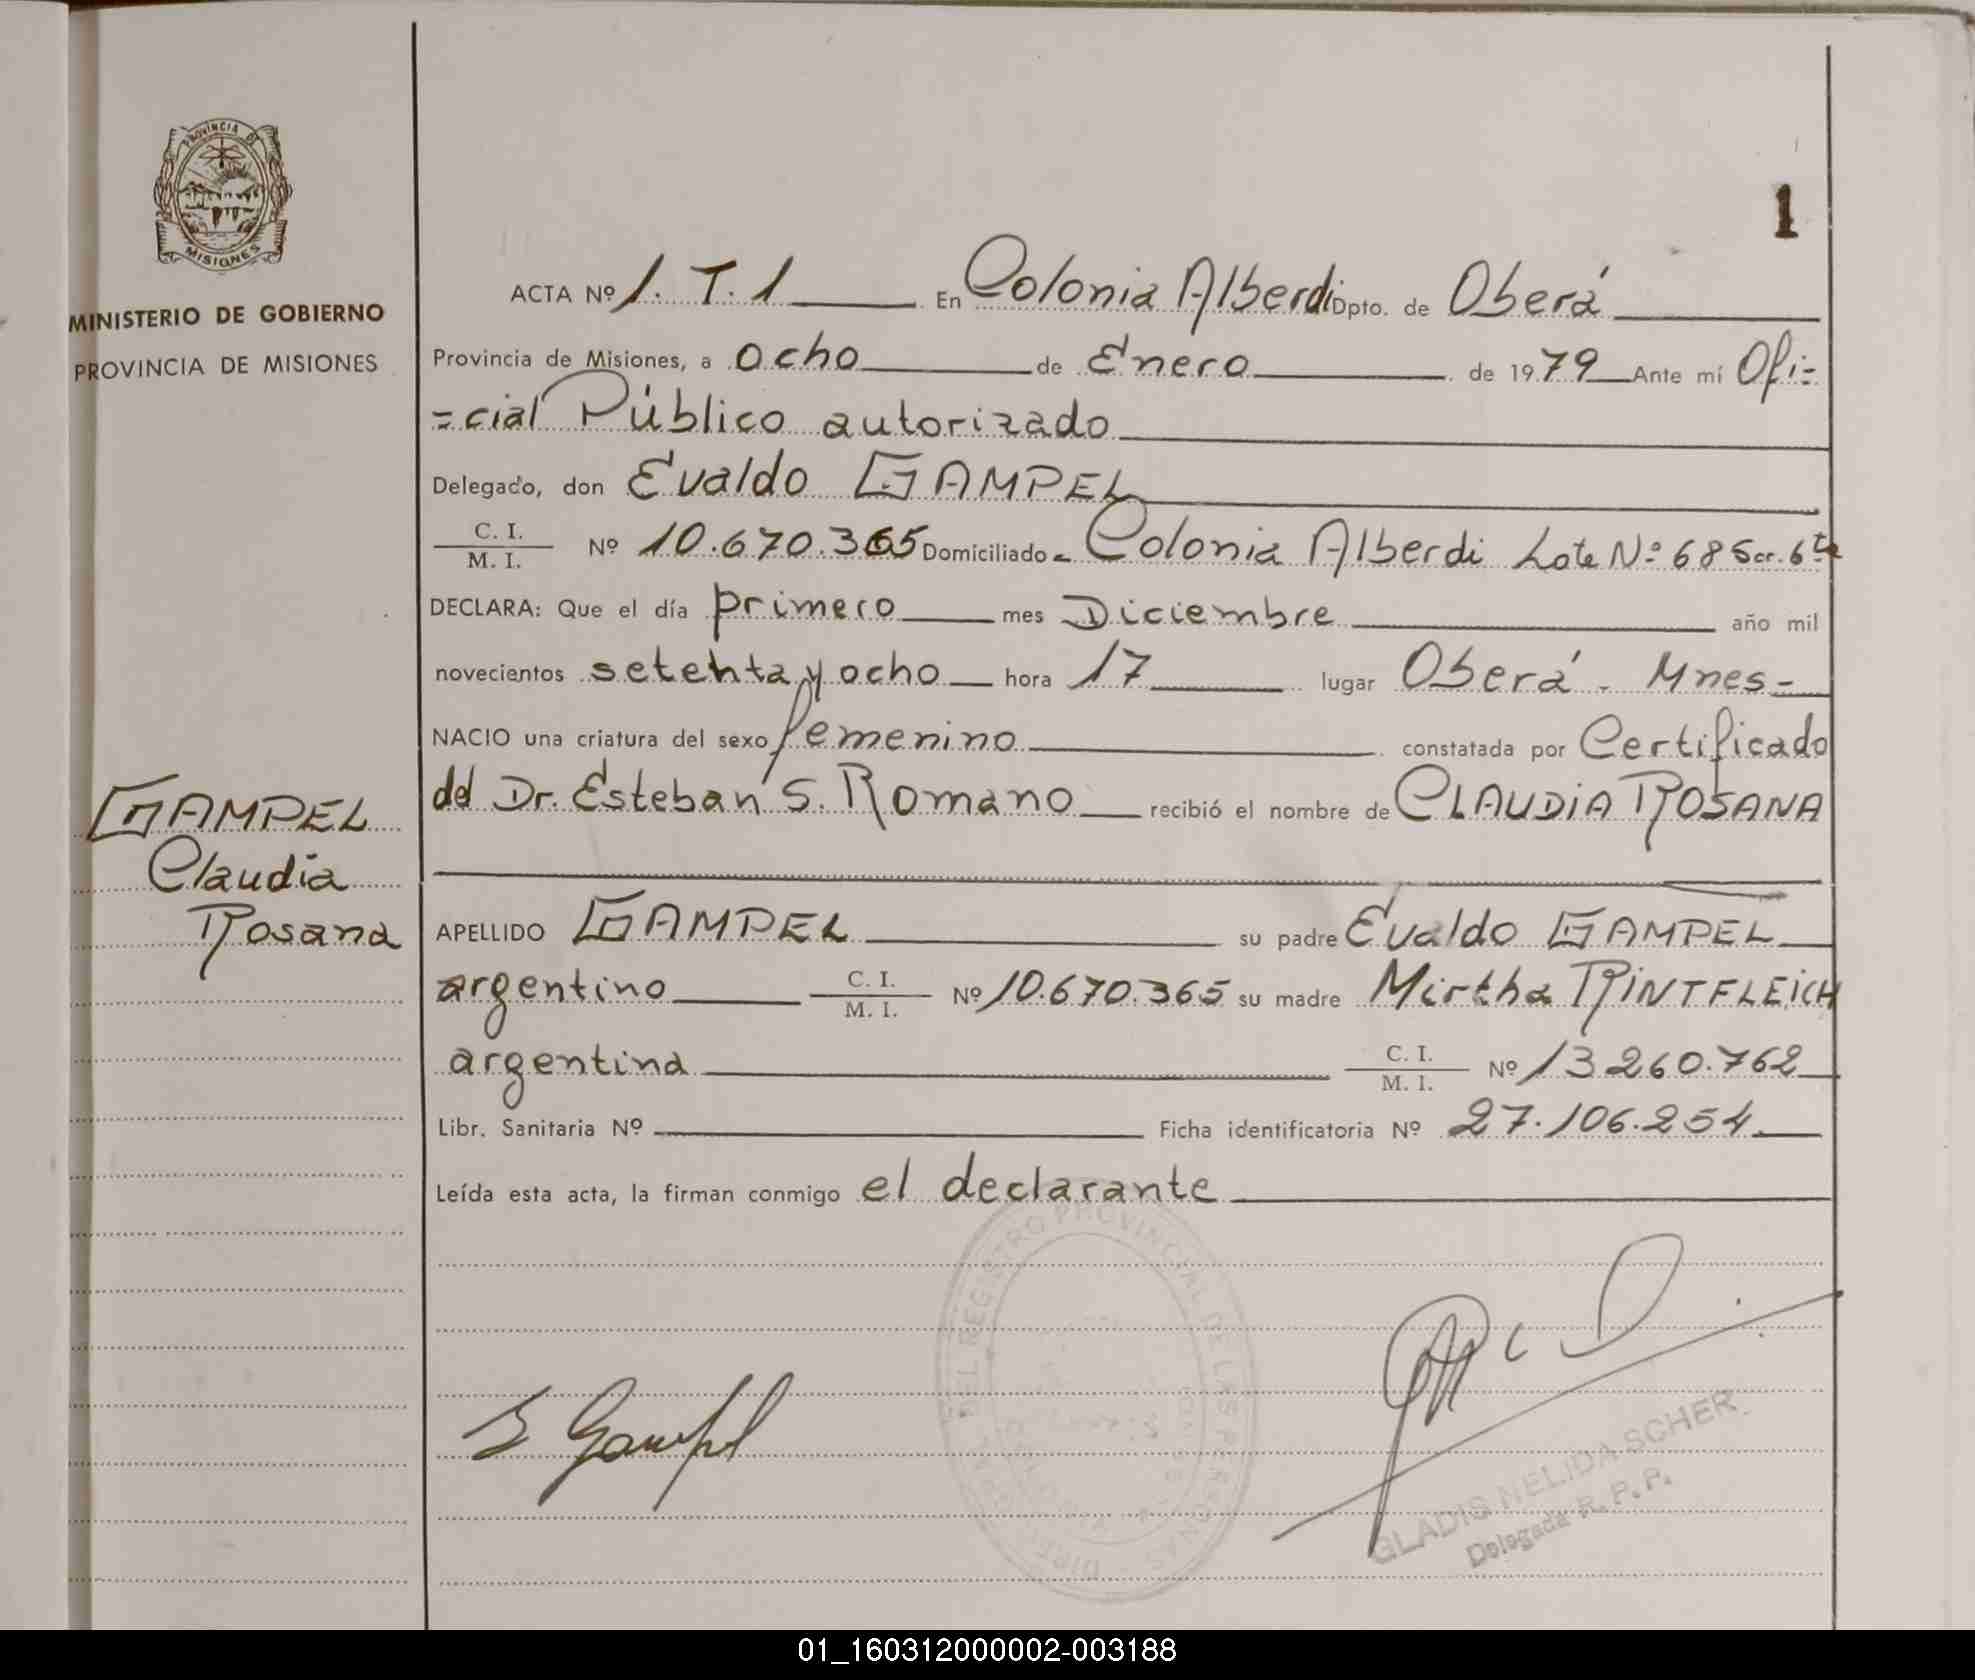 PROVINCIA DE
MISIONES
MINISTERIO DE GOBIERNO
PROVINCIA DE MISIONES
GAMPEL
Claudia
Rosana
1
ACTA Nº 1. T. 1 En Colonia Alberdi Dpto. de Oberá
Provincia de Misiones, a ocho de Enero de 1979 Ante mí Ofi=
=cial Público autorizado
Delegado, don Evaldo GAMPEL
C. I.
M. I. Nº 10.670.365 Domiciliado Colonia Alberdi Lote Nº 68 Scr. 6ta
DECLARA: Que el día primero mes Diciembre año mil
novecientos setenta y ocho hora 17 lugar Oberá - Mnes-
NACIO una criatura del sexo femenino constatada por Certificado
del Dr. Esteban S. Romano recibió el nombre de CLAUDIA ROSANA
APELLIDO GAMPEL su padre Evaldo GAMPEL
argentino C. I.
M. I. Nº 10.670.365 su madre Mirtha RINTFLEICH
argentina C. I.
M. I. Nº 13.260.762
Libr. Sanitaria Nº Ficha identificatoria Nº 27.106.254
Leída esta acta, la firman conmigo el declarante
DEL REGISTRO PROVINCIAL DE LAS PERSONAS
E Gampel
GLADIS NELIDA SCHER
Delegada R. P. P.
01_160312000002-003188